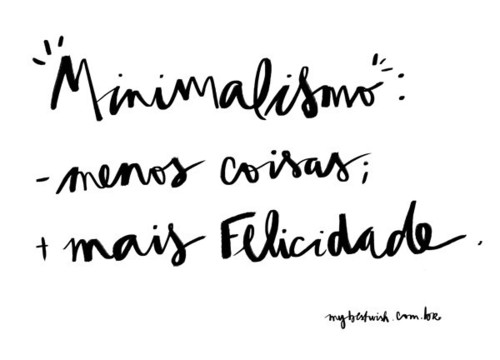 "Minimalismo":
- menos coisas;
+ mais Felicidade.
mybestwish.com.br